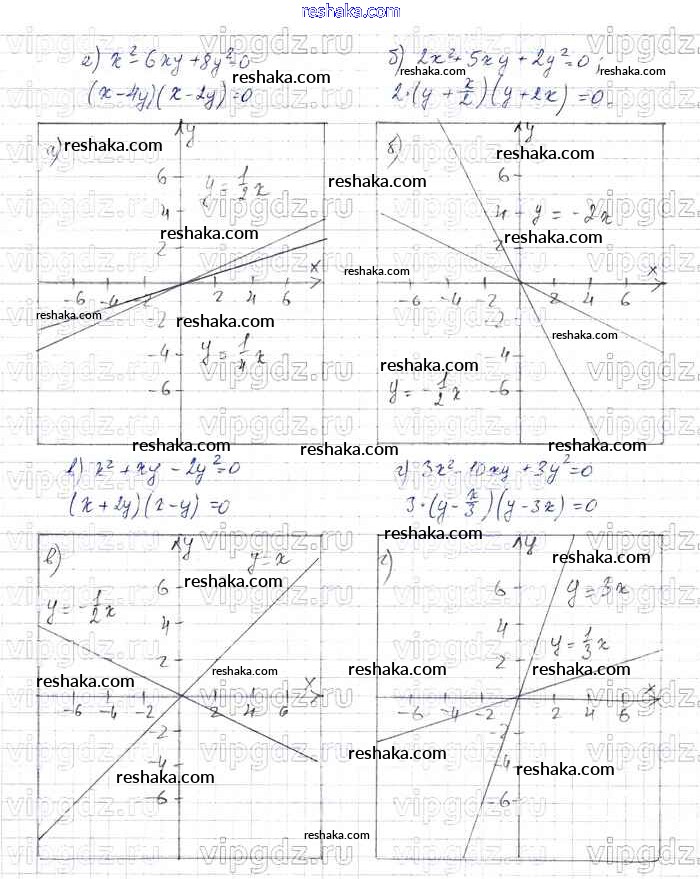 reshaka.com
а) x² - 6xy + 8y² = 0
(x-4y)(x-2y) = 0
б) 2x² + 5xy + 2y² = 0;
2·(y + x/2)(y + 2x) = 0
а)
y
y = 1/2 x
6
4
2
x
-6 -4 -2 2 4 6
-2
-4
-6
y = 1/4 x
б)
y
6
4
y = -2x
2
x
-6 -4 -2 2 4 6
-2
-4
-6
y = -1/2 x
в) x² + xy - 2y² = 0
(x+2y)(x-y) = 0
г) 3x² - 10xy + 3y² = 0
3·(y - x/3)(y - 3x) = 0
в)
y
y = x
y = -1/2 x
6
4
2
x
-6 -4 -2 2 4 6
-2
-4
-6
г)
y
6
y = 3x
4
y = 1/3 x
2
x
-6 -4 -2 2 4 6
-2
-4
-6
reshaka.com
vipgdz.ru